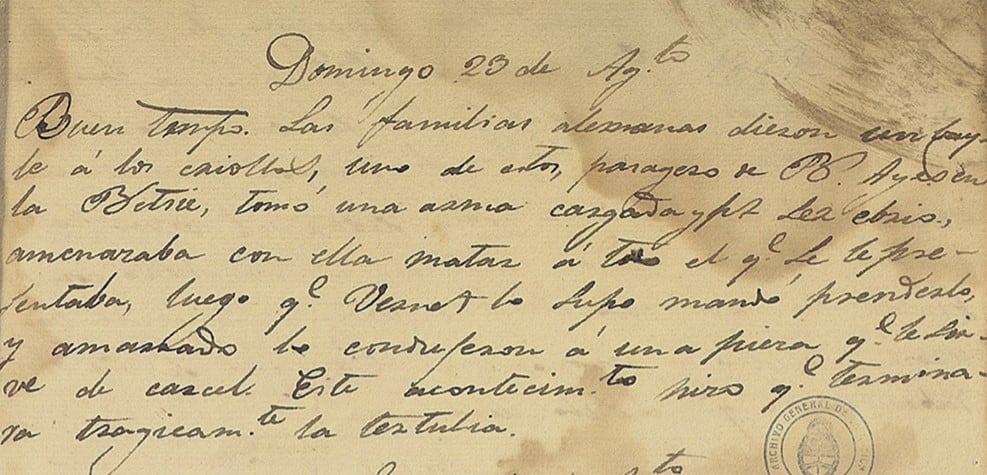 Domingo 23 de Ag.to
Buen tempo. Las familias alemanas dieron un bay-
le á los criollos, uno de estos, pasagero de B. Ayes en
la Betsie, tomó una arma cargada y pr ser ebrio,
amenazaba con ella matar á todo el q.e se le pre-
sentaba, luego q.e Vernet lo supo mandó prenderlo,
y amarrado lo condujeron á una pieza q.e le sir-
ve de carcel. Este acontecim.to hizo q.e termina-
ra tragicam.te la tertulia.
ARCHIVO GENERAL DE